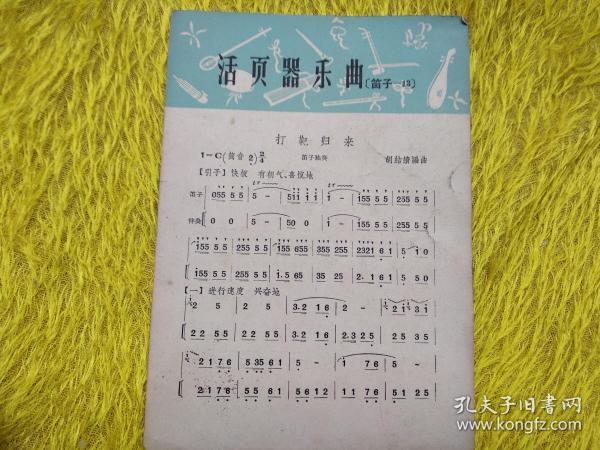 活页器乐曲〔笛子—13〕
打靶归来
1=C(筒音2) 2/4 笛子独奏 胡结续编曲
【引子】快板 有朝气、喜悦地
笛子 055 5 5 5 - 511 1 1 1 - 155 5 5 255 5 5
伴奏 0 0 5 - 50 0 1 - 155 5 5 255 5 5
155 5 5 255 5 5 155 655 355 255 2321 6 1 5 1 0
155 5 5 255 5 5 1.5 65 35 25 2. 1 6 1 5 5 0
【一】进行速度 兴奋地
2 5 2 5 3.2 1 6 2 - 2 1 3 1
2 2 5 5 2 2 5 5 3.2 1 6 2.3 2 5 5 5 3 5
2 1 7 6 5 35 6 1 5 - 1 7 6 5 -
2 1 7 6 5 5 6 1 5 6 1 2 1 1 7 6 5 1 2 5
孔夫子旧书网
www.kongfz.com